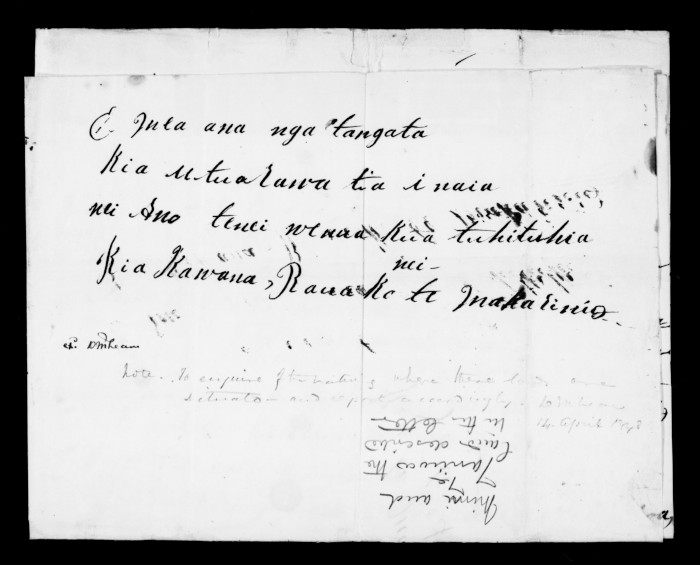 E mea ana nga tangata
kia utua rawa tia i naia
nei Ano tenei wenua kua tuhituhia
nei -
Kia Kawana, Raua Ko te Makarini
Note. To enquire of the natives where these lands are
situation and report accordingly. D McLean
14 April
and
Te
the
land described
in the letter